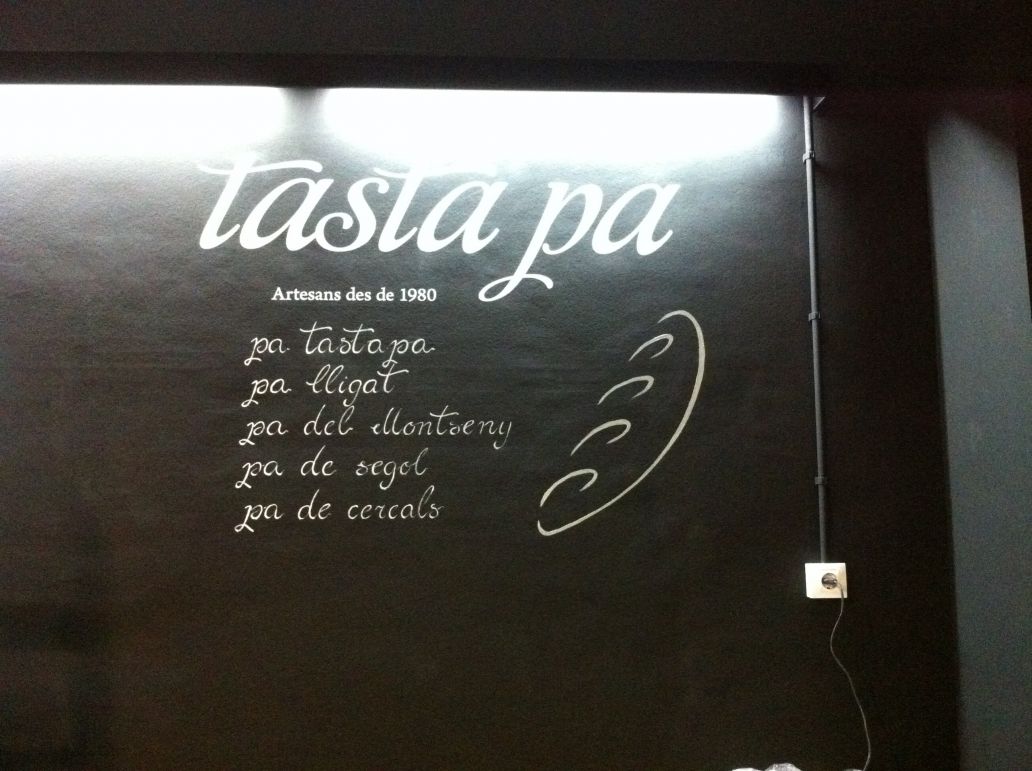 tasta pa
Artesans des de 1980
pa tasta pa
pa lligat
pa del Montseny
pa de segol
pa de cereals